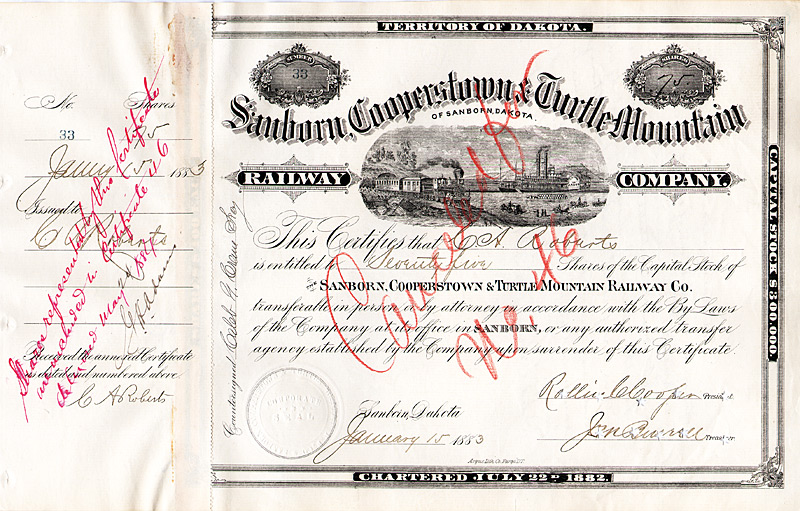 No. Shares
33 75
Jan'y 15 1883
Issued to
C A Roberts
Received the annexed Certificate
as dated and numbered above.
C A Roberts
Shares represented by this Certificate
are included in Certificate 46
dated May
Countersigned Caleb
TERRITORY OF DAKOTA.
NUMBER
33
SHARES
75
Sanborn, Cooperstown & Turtle Mountain
OF SANBORN, DAKOTA.
RAILWAY COMPANY.
This Certifies that C A. Roberts
is entitled to Seventy five Shares of the Capital Stock of
THE SANBORN, COOPERSTOWN & TURTLE MOUNTAIN RAILWAY CO.
transferable in person or by attorney in accordance with the By Laws
of the Company at its office in SANBORN, or any authorized transfer
agency established by the Company upon surrender of this Certificate.
Sanborn, Dakota
January 15 1883
Rollin C Cooper President
Treasurer
Argus Lith. Co. Fargo D.T.
CHARTERED JULY 22D 1882.
CAPITAL STOCK $800,000.
Cancelled
No. 46